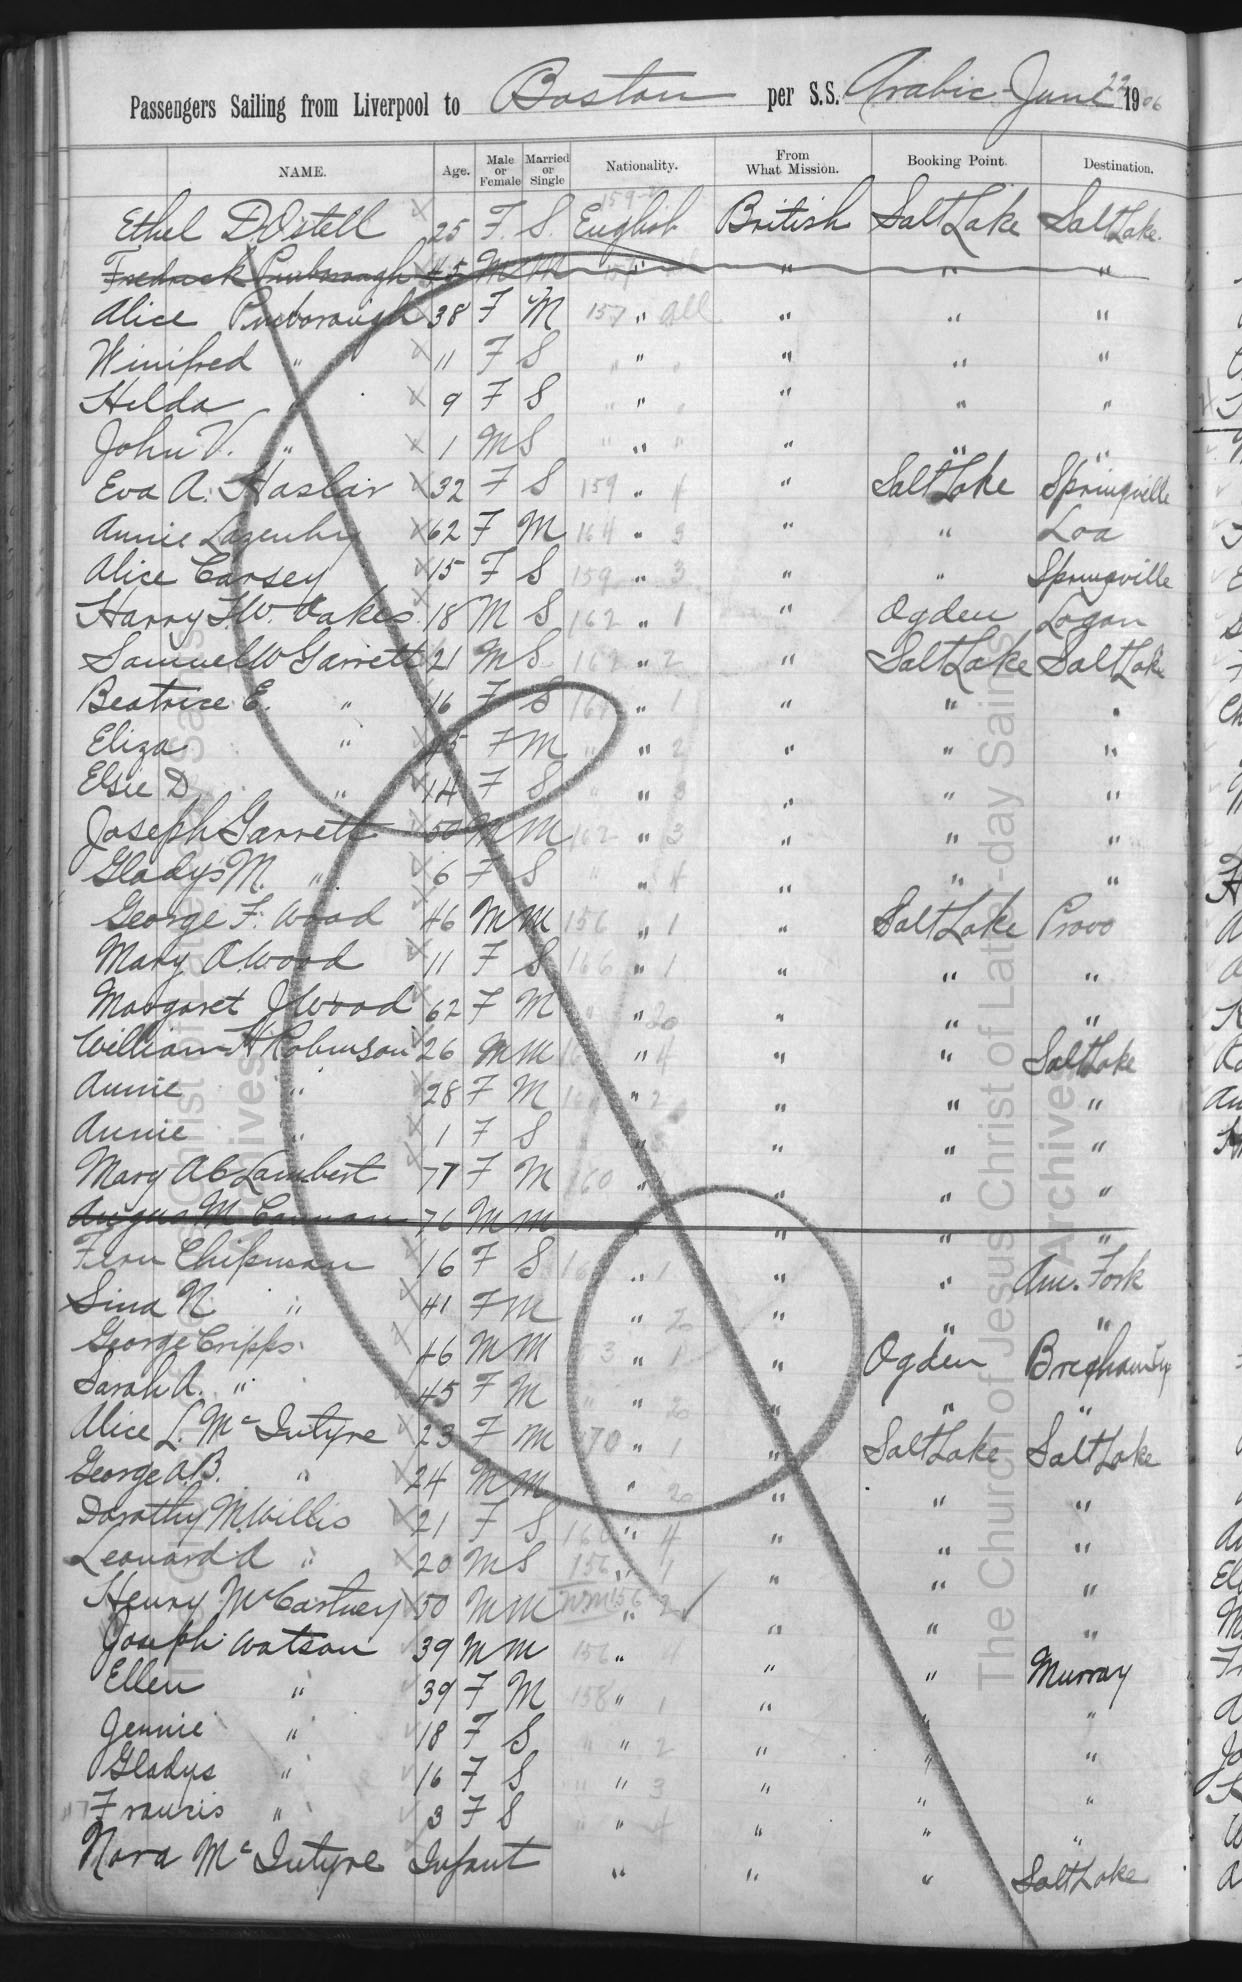 Passengers Sailing from Liverpool to Boston per S.S. Arabic June 22 1906
NAME. Age. Male or Female Married or Single Nationality. From What Mission. Booking Point. Destination.
Ethel 25 F. S. English British Salt Lake Salt Lake.
Fredrick 45 M M " " " "
Alice 38 F M 157 " all " " "
Winifred " 11 F S " " " "
Hilda 9 F S " " " "
John V. " 1 M S " " " "
Eva A. Haslar 32 F S 159 " 4 " Salt Lake Springville
Annie Lazenby 62 F M 164 " 3 " " Loa
Alice Carsey 15 F S 159 " 3 " " Springville
Harry F.W. Oakes 18 M S 162 " 1 " Ogden Logan
Samuel W Garrett 21 M S 162 " 2 " Salt Lake Salt Lake
Beatrice E. " 16 F S " 1 " " "
Eliza " 45 F M " " 2 " " "
Elsie D " 14 F S " " 3 " " "
Joseph Garrett 50 M M 162 " 3 " " "
Gladys M. " 6 F S " " 4 " " "
George F. Wood 46 M M 156 " 1 " Salt Lake Provo
Mary A. Wood 11 F S 166 " 1 " " "
Margaret J Wood 62 F M " " 20 " " "
William H Robinson 26 M M " 4 " " Salt Lake
Annie " 28 F M " 2 " " "
Annie " 1 F S " " " "
Mary A C Lambert 77 F M 160 " " " "
Angus M Cannon 76 M M " " " "
Fern Chipman 16 F S " 1 " " Am. Fork
Sina N. " 41 F M " 20 " " "
George Cripps. 46 M M 3 " 1 " Ogden Brigham
Sarah A. " 45 F M " " 20 " " "
Alice L. McIntyre 23 F M 170 " 1 " Salt Lake Salt Lake
George A.B. " 24 M M " 20 " " "
Dorothy M. Willis 21 F S " 4 " " "
Leonard A " 20 M S 156 " 1 " " "
Henry McCartney 50 M M 156 " 2 " " "
Joseph Watson 39 M M 156 " 4 " " Murray
Ellen " 39 F M 158 " 1 " " "
Jennie " 18 F S " " 2 " " "
Gladys " 16 F S " " 3 " " "
Francis " 3 F S " " 4 " " "
Nora McIntyre Infant " " " Salt Lake
The Church of Jesus Christ of Latter-day Saints
Archives